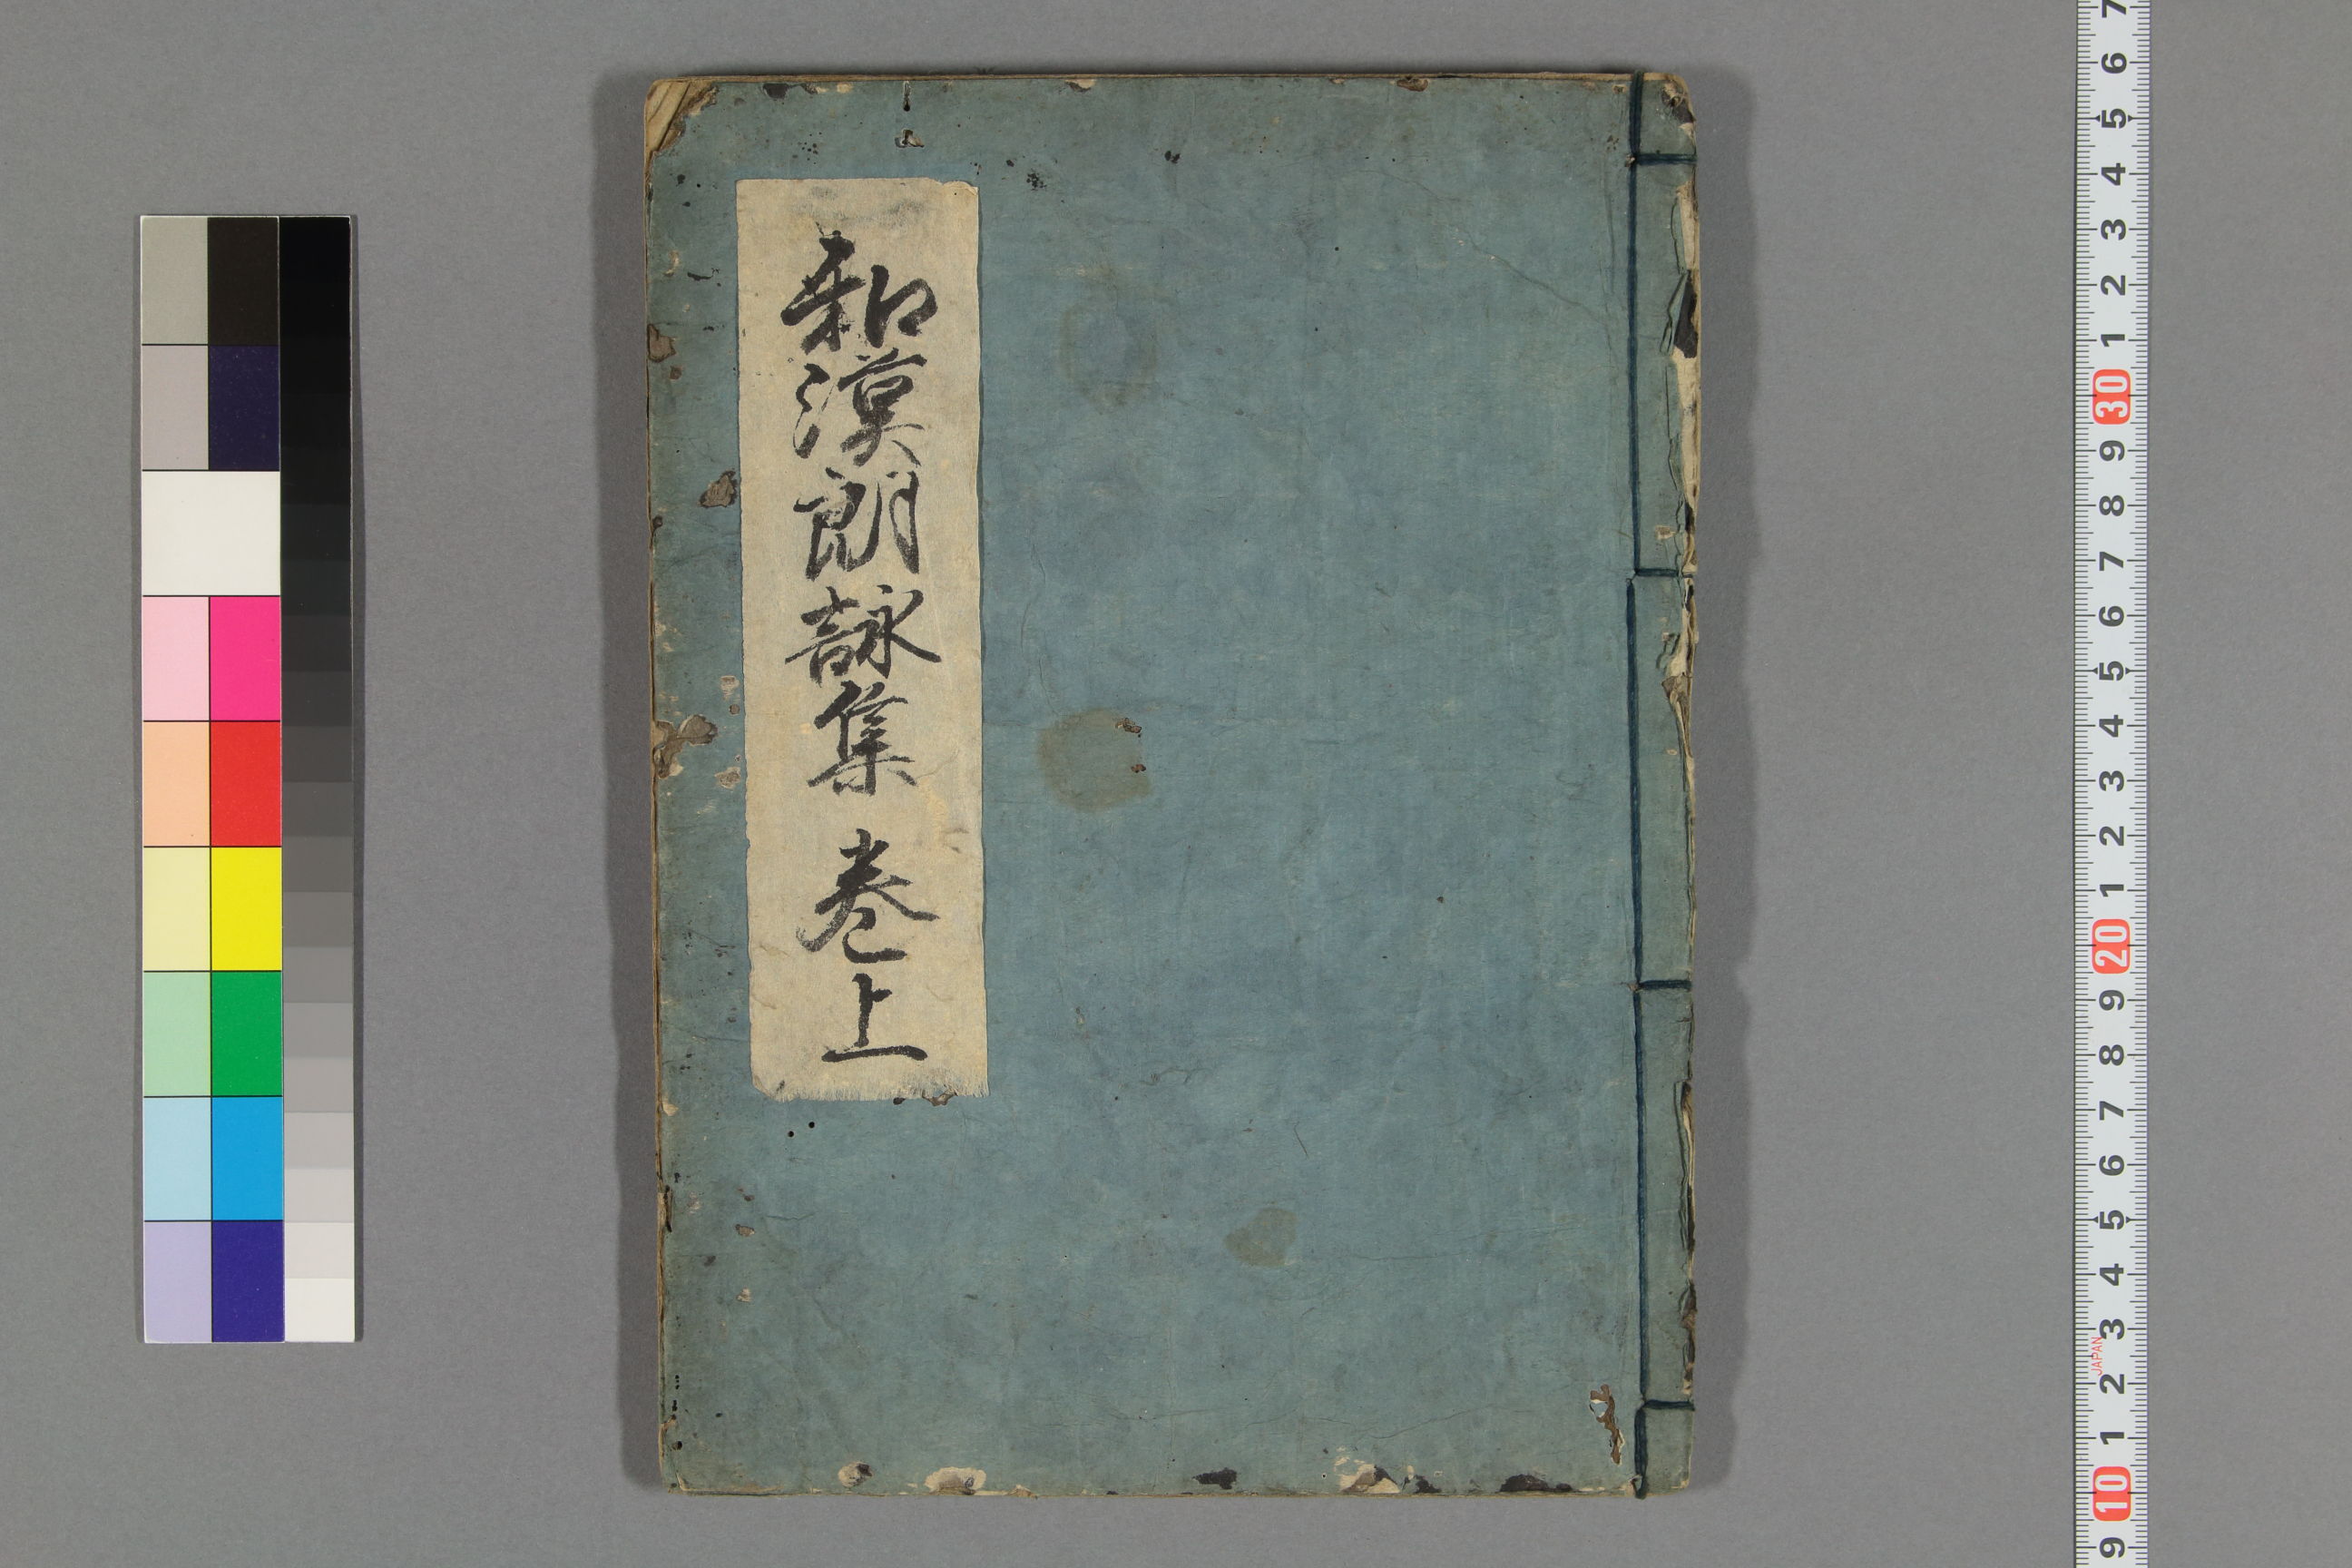 和漢朗詠集 巻上
7
6
5
4
3
2
1
30
9
8
7
6
5
4
3
2
1
20
9
8
7
6
5
4
3
JAPAN
2
1
10
9